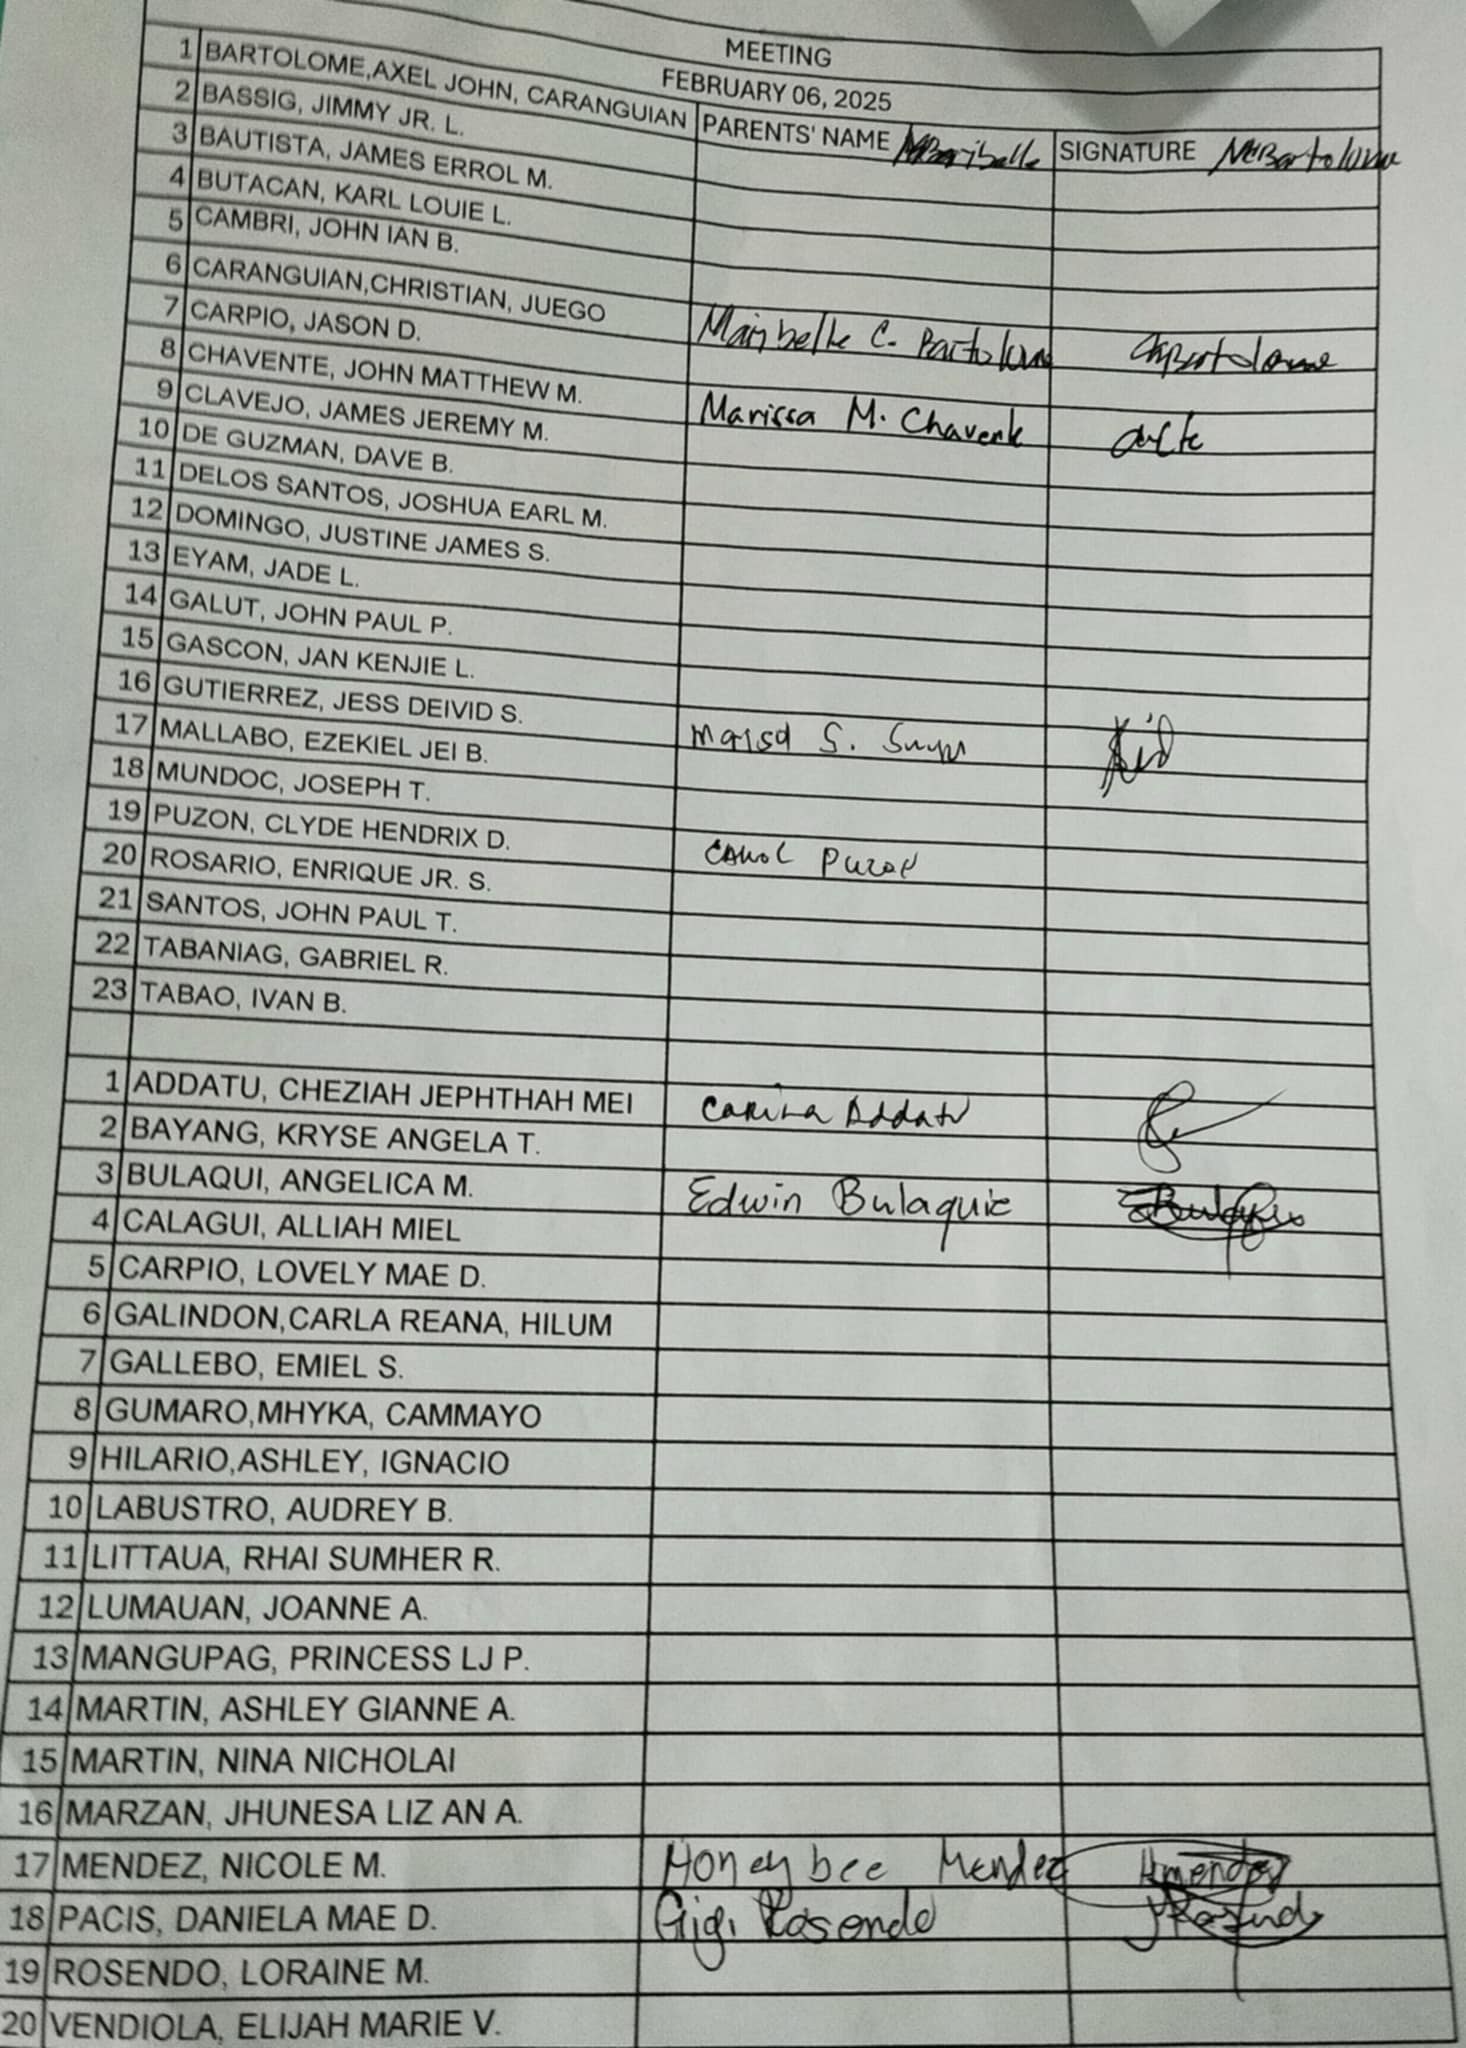 MEETING
FEBRUARY 06, 2025
1 BARTOLOME,AXEL JOHN, CARANGUIAN PARENTS' NAME Maribelle SIGNATURE MCBartolome
2 BASSIG, JIMMY JR. L.
3 BAUTISTA, JAMES ERROL M.
4 BUTACAN, KARL LOUIE L.
5 CAMBRI, JOHN IAN B.
6 CARANGUIAN,CHRISTIAN, JUEGO Maribelle C. Bartolome Bartolome
7 CARPIO, JASON D.
8 CHAVENTE, JOHN MATTHEW M. Marissa M. Chavente
9 CLAVEJO, JAMES JEREMY M.
10 DE GUZMAN, DAVE B.
11 DELOS SANTOS, JOSHUA EARL M.
12 DOMINGO, JUSTINE JAMES S.
13 EYAM, JADE L.
14 GALUT, JOHN PAUL P.
15 GASCON, JAN KENJIE L.
16 GUTIERREZ, JESS DEIVID S. S.
17 MALLABO, EZEKIEL JEI B.
18 MUNDOC, JOSEPH T.
19 PUZON, CLYDE HENDRIX D. CAROL PUZON
20 ROSARIO, ENRIQUE JR. S.
21 SANTOS, JOHN PAUL T.
22 TABANIAG, GABRIEL R.
23 TABAO, IVAN B.
1 ADDATU, CHEZIAH JEPHTHAH MEI Carina Addatu
2 BAYANG, KRYSE ANGELA T.
3 BULAQUI, ANGELICA M. Edwin Bulaquie
4 CALAGUI, ALLIAH MIEL
5 CARPIO, LOVELY MAE D.
6 GALINDON,CARLA REANA, HILUM
7 GALLEBO, EMIEL S.
8 GUMARO,MHYKA, CAMMAYO
9 HILARIO,ASHLEY, IGNACIO
10 LABUSTRO, AUDREY B.
11 LITTAUA, RHAI SUMHER R.
12 LUMAUAN, JOANNE A.
13 MANGUPAG, PRINCESS LJ P.
14 MARTIN, ASHLEY GIANNE A.
15 MARTIN, NINA NICHOLAI
16 MARZAN, JHUNESA LIZ AN A.
17 MENDEZ, NICOLE M. Honeybee Mendez Hmendez
18 PACIS, DANIELA MAE D. Gigi Rosendo
19 ROSENDO, LORAINE M.
20 VENDIOLA, ELIJAH MARIE V.